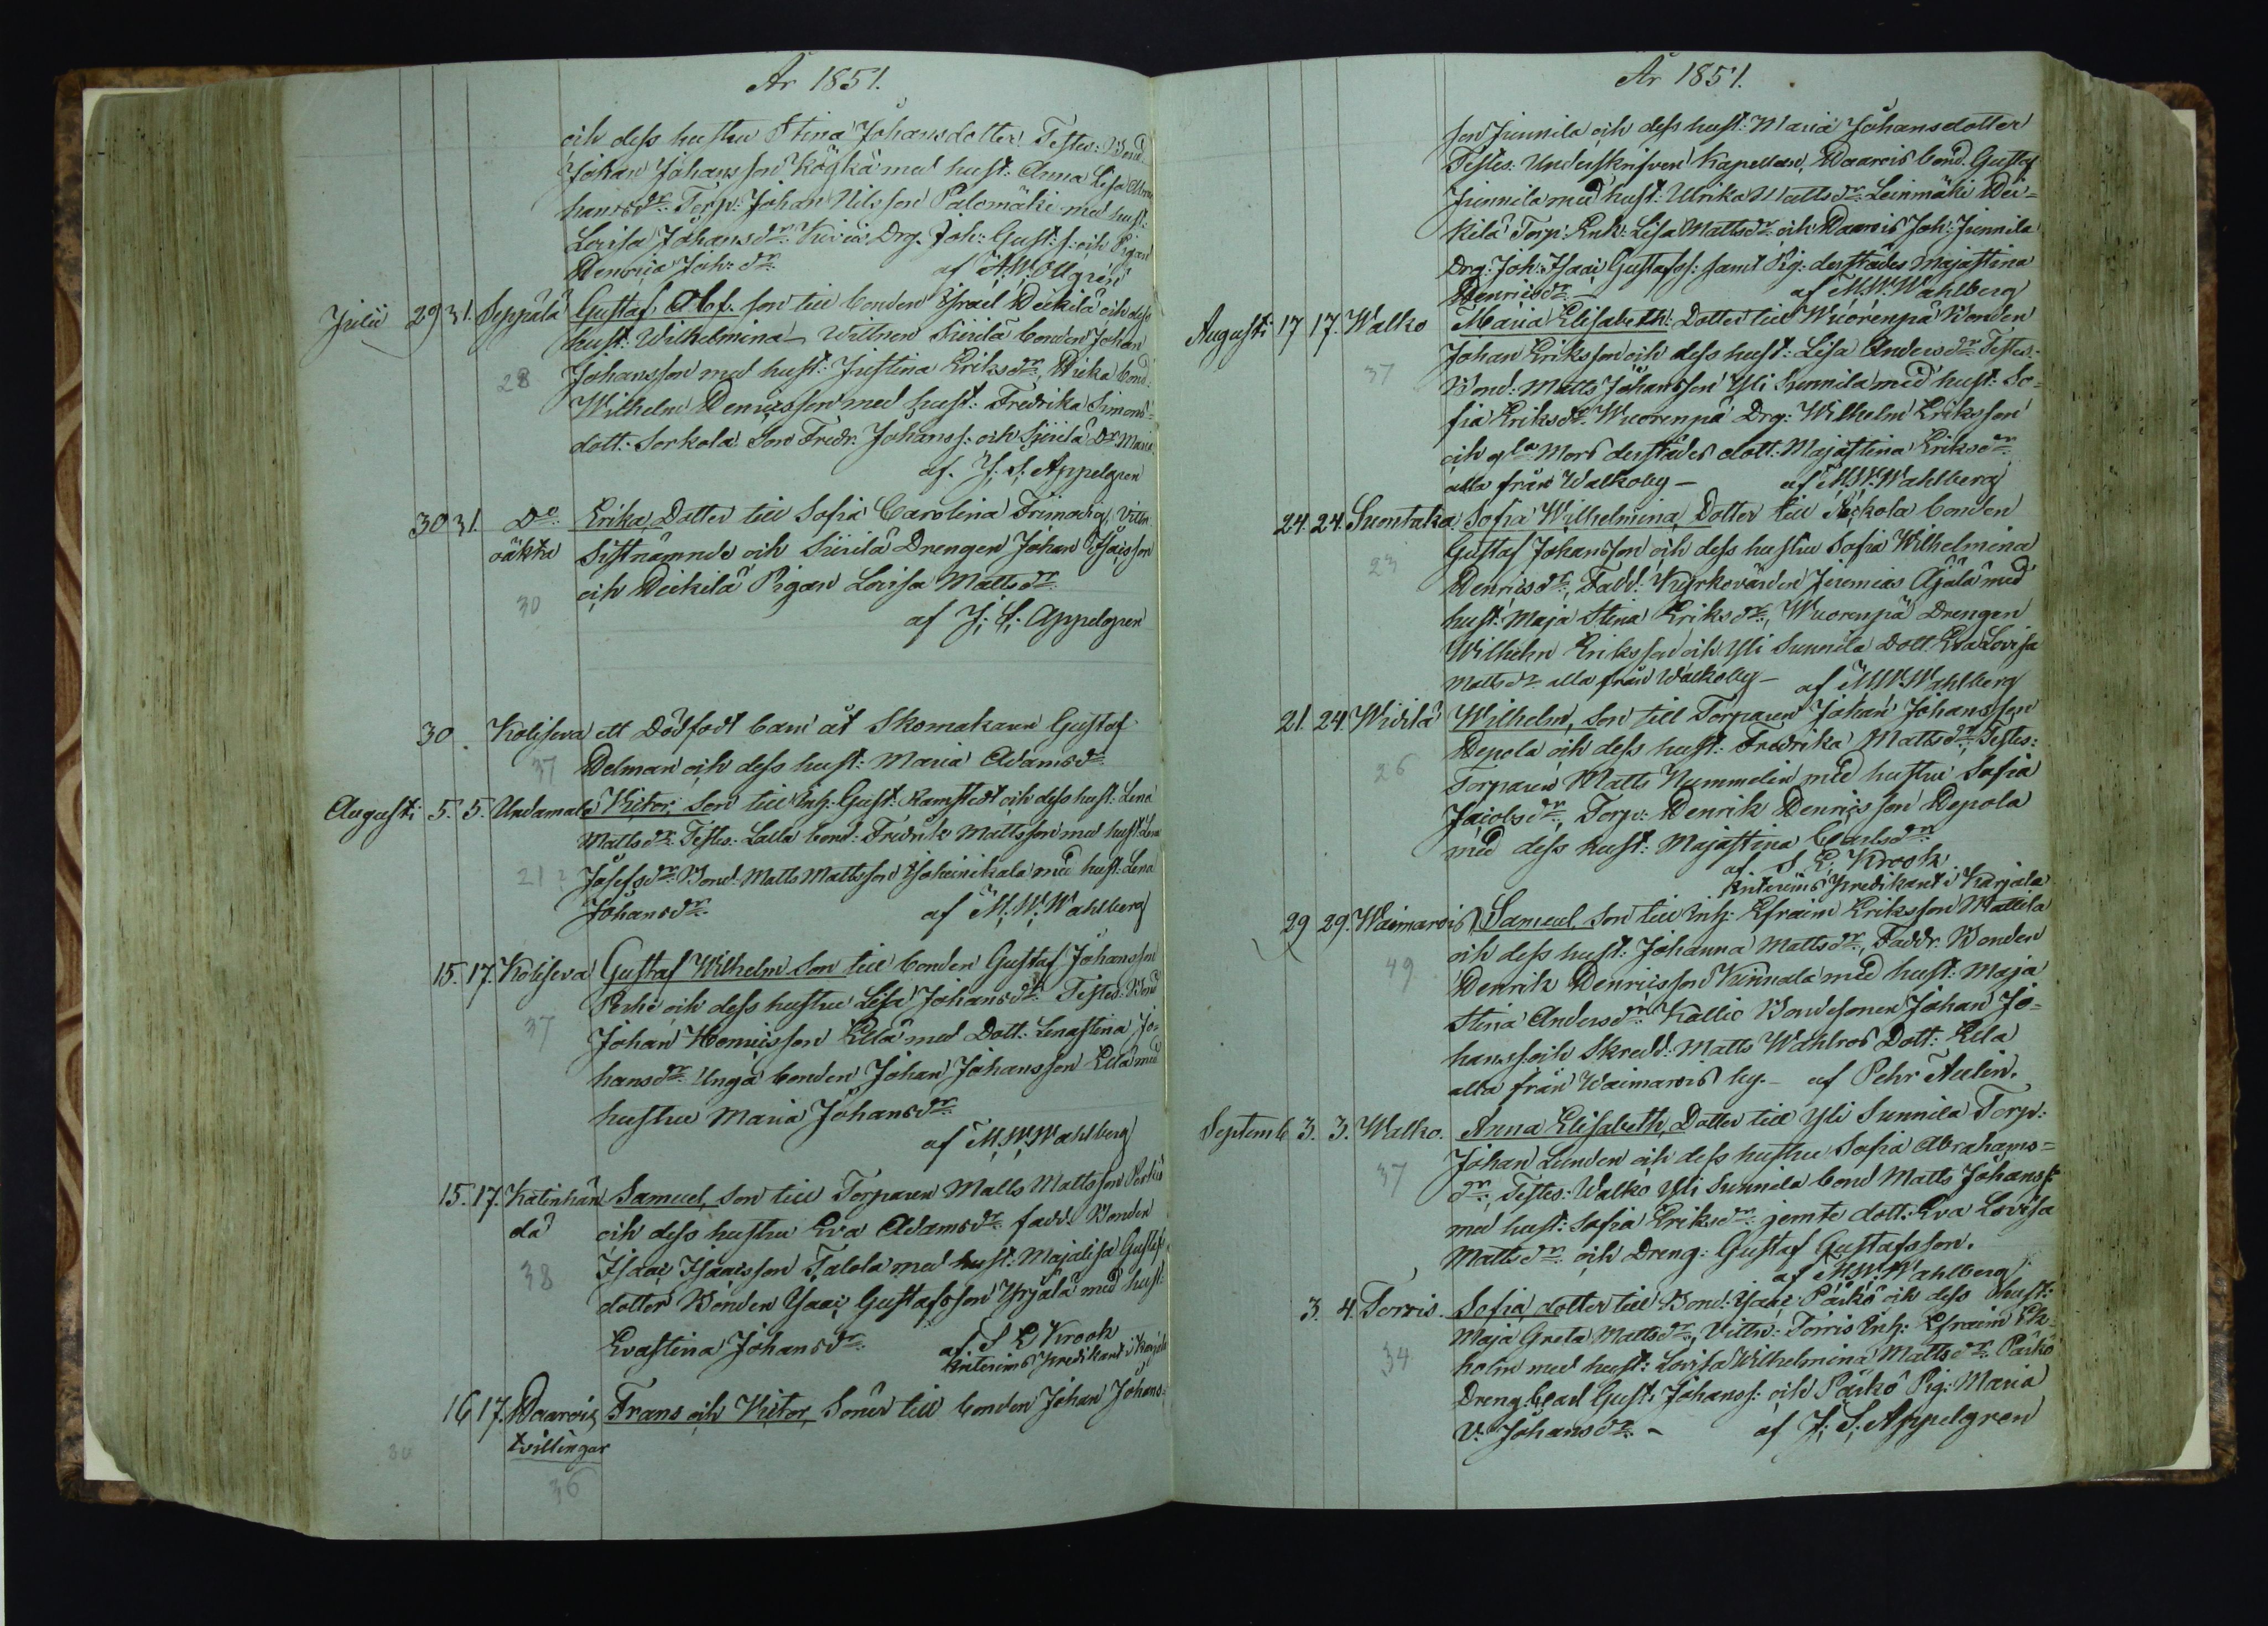 År 1851.
och dess hustru Stina Johansdotter Testes: Bond
Johan Johansson Kögkä med hust: Anna Lisa
hansdr: Torp: Johan Nilsson Palomäki med hust:
Lovisa Johansdr: Kivia Drg. Joh: Gust: s: och Pigan
Henrica Joh: dr:
af A. W. Ollgren
Julii 29 31. Seppälä Gustaf, Alof. son till bonden Israel Heikilä och dess
hust: Wilhelmina Wittnen Siuilä bonden Johan
28 Johansson med hust: Justina Eriksdr:, Hieka bond:
Wilhelm Henricsson med hust: Fredrika Simons=
dott: Sorkola Son Fredr. Johanss: och Siuilä Dr Maria
af. J. S. Appelgren
30 31. Do: Erika, Dotter till Sofia Carolina Friman Vittn.
oäkta Sistnämnde och Siuilä Drengen Johan Isacsson
30 och Heikilä Pigan Lovisa Mattsdr:
af J: S: Appelgren
30. Koliseva ett Dödfödt barn åt Skomakaren Gustaf
37 Helman och dess hust: Maria Adamsdr:
Augusti 5. 5. Undamala Victor, son till Inh: Gust: Ramstedt och dess hust: Lena
Mattsdr: Testes: Lalla bond: Fredrik Mattsson med hust: Lena
21? Josefsdr: Bond: Matts Mattsson Isoheinikala med hust: Lena
Johansdr:
af M. W. Wahlberg
15. 17. Koliseva Gustaf Wilhelm son till bonden Gustaf Johansson
Perhe och dess hustru Lisa Johansdr: Testes: Bond
37 Johan Henricsson Eila med Dott: Lenastina Jo=
hansdr: Unga bonden Johan Johansson Eila med
hustru Maria Johansdr:
af M. W. Wahlberg
15. 17. Katinhän Samuel, son till Torparen Matts Mattsson
dä och dess hustru Eva Adamsdr: fadd: Bonden
38 Isaac Isaacsson Talola med hust: Majalisa Gustafs
dotter Bonden Isaac Gustafsson Yrjälä med hust:
Evastina Johansdr:
af. S E Krook
Interims Predikant i Karjala
16 17. Haarois Frans och Victor, Söner till bonden Johan Johans=
tvillingar
36
År 1851.
son Junnila och dess hust: Maria Johansdotter
Testes: Underskrifven Kapellan, Haarois bond: Gustaf
Junnila med hust: Ulrika Mattsdr: Leinmäki Hei=
kilä Torp: Enk: Lisa Mattsdr: och Haarois Joh: Junnila
Drg: Joh: Isaac Gustafss: samt Pig: derstädes Majastina
Henricsdr:
af M. W. Wahlberg
Augusti 17 17. Walko Maria Elisabeth. Dotter till Wuorenpä Bonden
Johan Eriksson och dess hust: Lisa Andersdr: Testes:
37 Bond: Matts Johansson Yli Sunnila med hust: So=
fia Eriksdr: Wuorenpä Drg: Wilhelm Eriksson
och gla Mors derstädes dott: Majastina Eriksdr:
alla från Walkoby –
af M. W. Wahlberg
24. 24. Suontaka Sofia Wilhelmina, Dotter till bonden
23 Gustaf Johansson och dess hustru Sofia Wilhelmina
Henricsdr:, Fadd: Kyrkovärden Jeremias Äjälä med
hust: Maja Stina Eriksdr:, Wuorenpä Drengen
Wilhelm Eriksson och Yli Sunnila Dott: Eva Lovisa
Mattsdr: alla från Walkoby –
af M. W. Wahlberg
21. 24. Widilä Wilhelm, Son till Torparen Johan Johansson
Hepola och dess hust: Fredrika Mattsdr:, Testes:
26 Torparen Matts Nummelin med hustru Sofia
Jacobsdr:, Torp: Henrik Henricsson Hepola
med dess hust: Majastina Carlsdr:
af. S E: Krook
Interims Predikant i Karjala
29 29. Waimarois Samuel, Son till Inh: Efraim Eriksson Mattila
och dess hust: Johanna Mattsdr:, Faddr. Bonden
49 Henrik Henricsson Kinnala med hust: Maja
Stina Andersdr: Kallio Bondesonen Johan Jo=
hanss. och Skredd: Matts Wahlros Dott: Eila
alla från Waimarois by. – af Pehr Aulin.
Septemb 3. 3. Walko. Anna Elisabeth, Dotter till Yli Sunnila Torp:
37 Johan Lunden och dess hustru Sofia Abrahams=
dr:, Testes: Walko Yli Sunnila bond Matts Johanss:
med hust: Sofia Eriksdr: jemte dott: Eva Lovisa
Mattsdr: och Dreng: Gustaf Gustafsson.
af M. W. Wahlberg
3. 4. Torris. Sofia, dotter till Bond: Isaac Päikö och dess hust:
Maja Greta Mattsdr:, Vittn: Torris Inh: Efraim Ek
34 holm med hust: Lovisa Wilhelmina Mattsdr: Päikö
Dreng. Carl Gust: Johanss: och Päikö Pig: Maria
V: Johansdr: –
af J. S. Appelgren